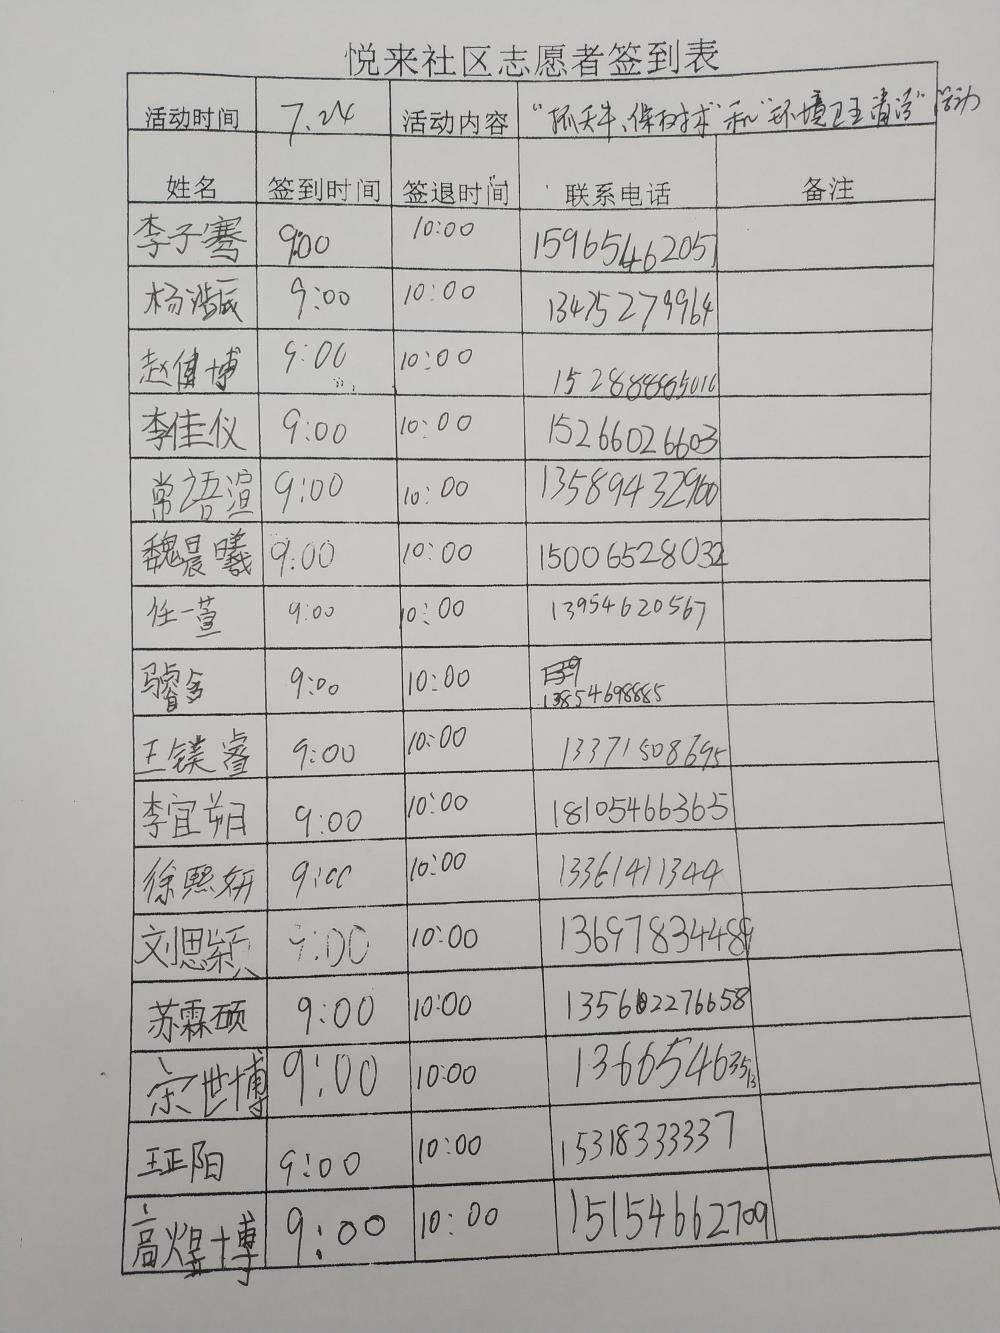 悦来社区志愿者签到表
活动时间 7.24 活动内容 "抓天牛、保树木"和"环境卫生清洁"活动
姓名 签到时间 签退时间 联系电话 备注
李子骞 9:00 10:00 15965462051
杨浩辰 9:00 10:00 13475279964
赵健博 9:00 10:00
李佳仪 9:00 10:00 15266026603
常语渲 9:00 10:00 13589432900
魏晨曦 9:00 10:00 15006528032
任一萱 9:00 10:00 13954620567
9:00 10:00 13854698885
王镁睿 9:00 10:00 13371508695
李宜朔 9:00 10:00 18105466365
徐熙妍 9:00 10:00 13361411344
刘思颖 9:00 10:00 13697834489
苏霖硕 9:00 10:00
宗世博 9:00 10:00 13665463513
王正阳 9:00 10:00 15318333337
高煜博 9:00 10:00 15154662709